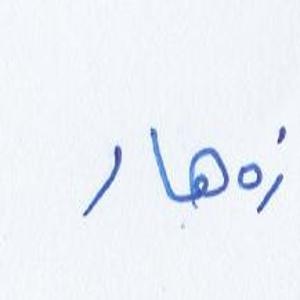 زهار